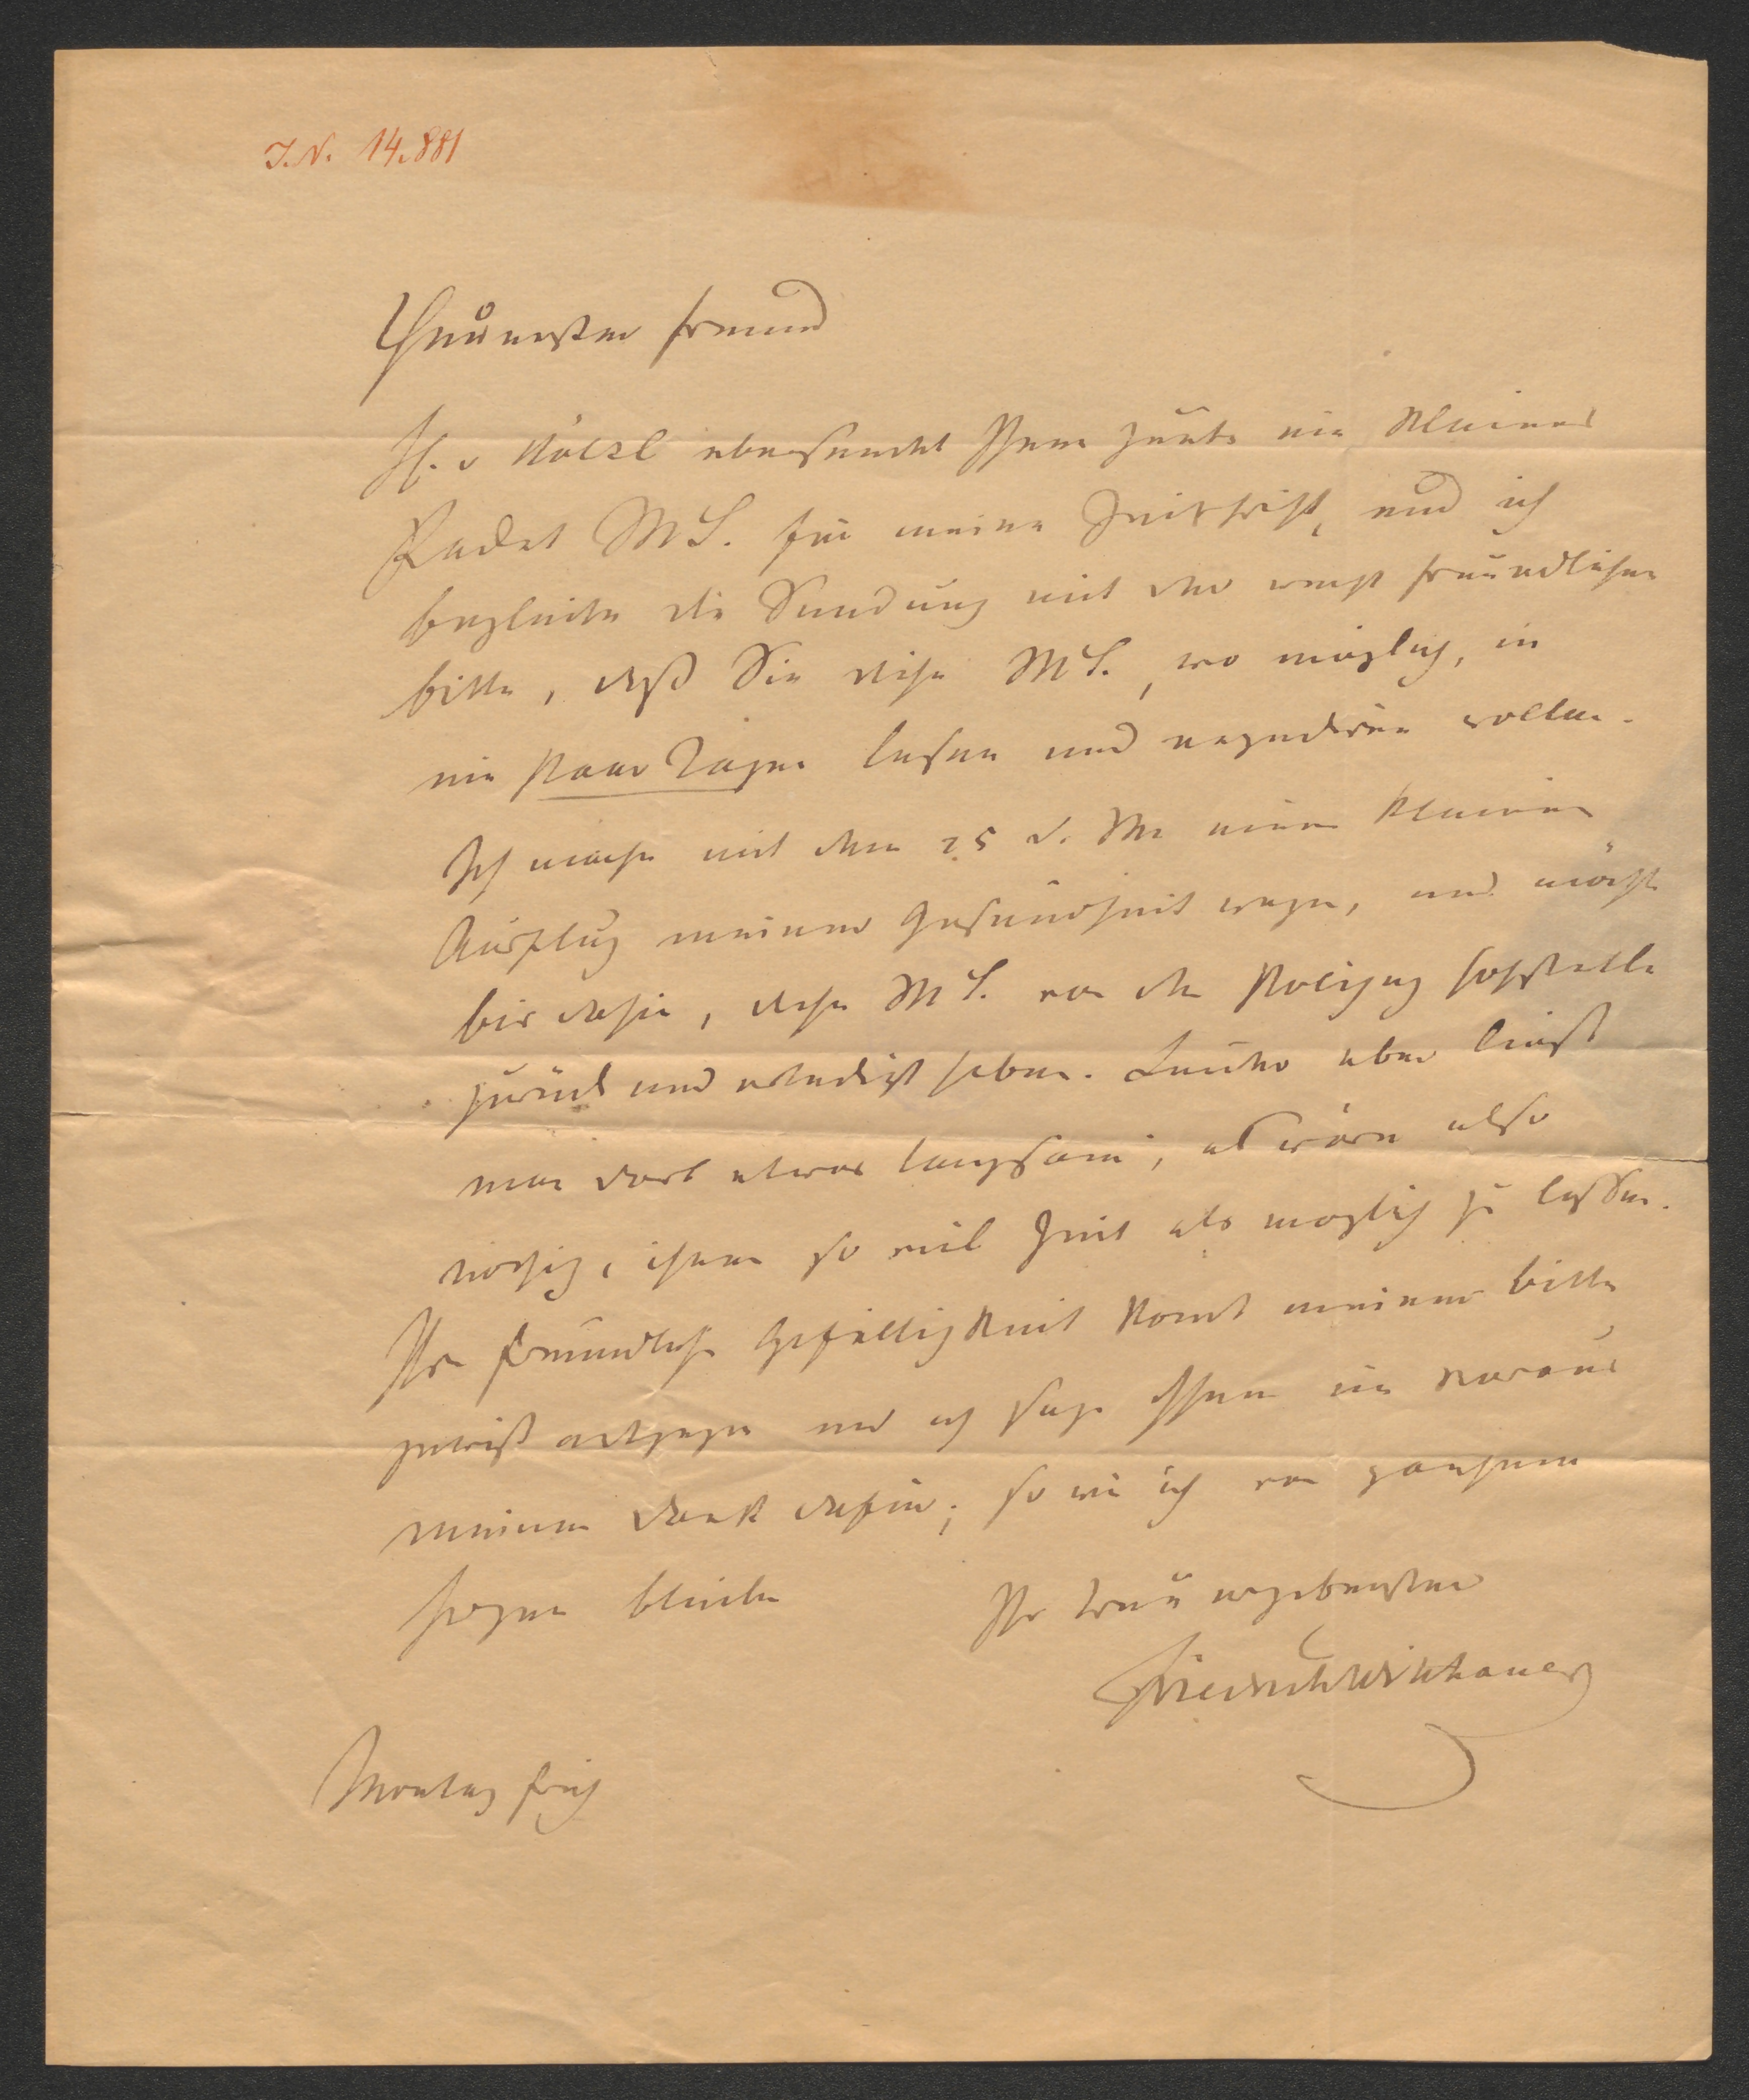 I.N. 14.881
Theuerster Freund
H. v Kölzl übersendet Ihnen heute ein kleines
Packet MS. für meine Zeitschrift, und ich
begleite die Sendung mit der recht freundlichen
bitte, daß Sie diese MS., wo möglich, in
ein Paar Tagen lesen und wollen.
Ich mache mit dem 25 d. M. einen kleinen
Ausflug meiner Gesundheit wegen, und möchte
bis dahin, diese MS. von der Polizey hofstelle
zurück und erledigt haben. Leider aber liest
man dort etwas langsam, es wäre also
nöthig, ihnen so viel Zeit als möglich zu lassen.
Ihre freundliche Gefälligkeit komt meiner bitte
gewiß entgegen und ich sage Ihnen im voraus
meinen Dank dafür; so wie ich von ganzem
Herzen bleibe Ihr treu ergebenster
Friedrich Witthauer
Montag früh